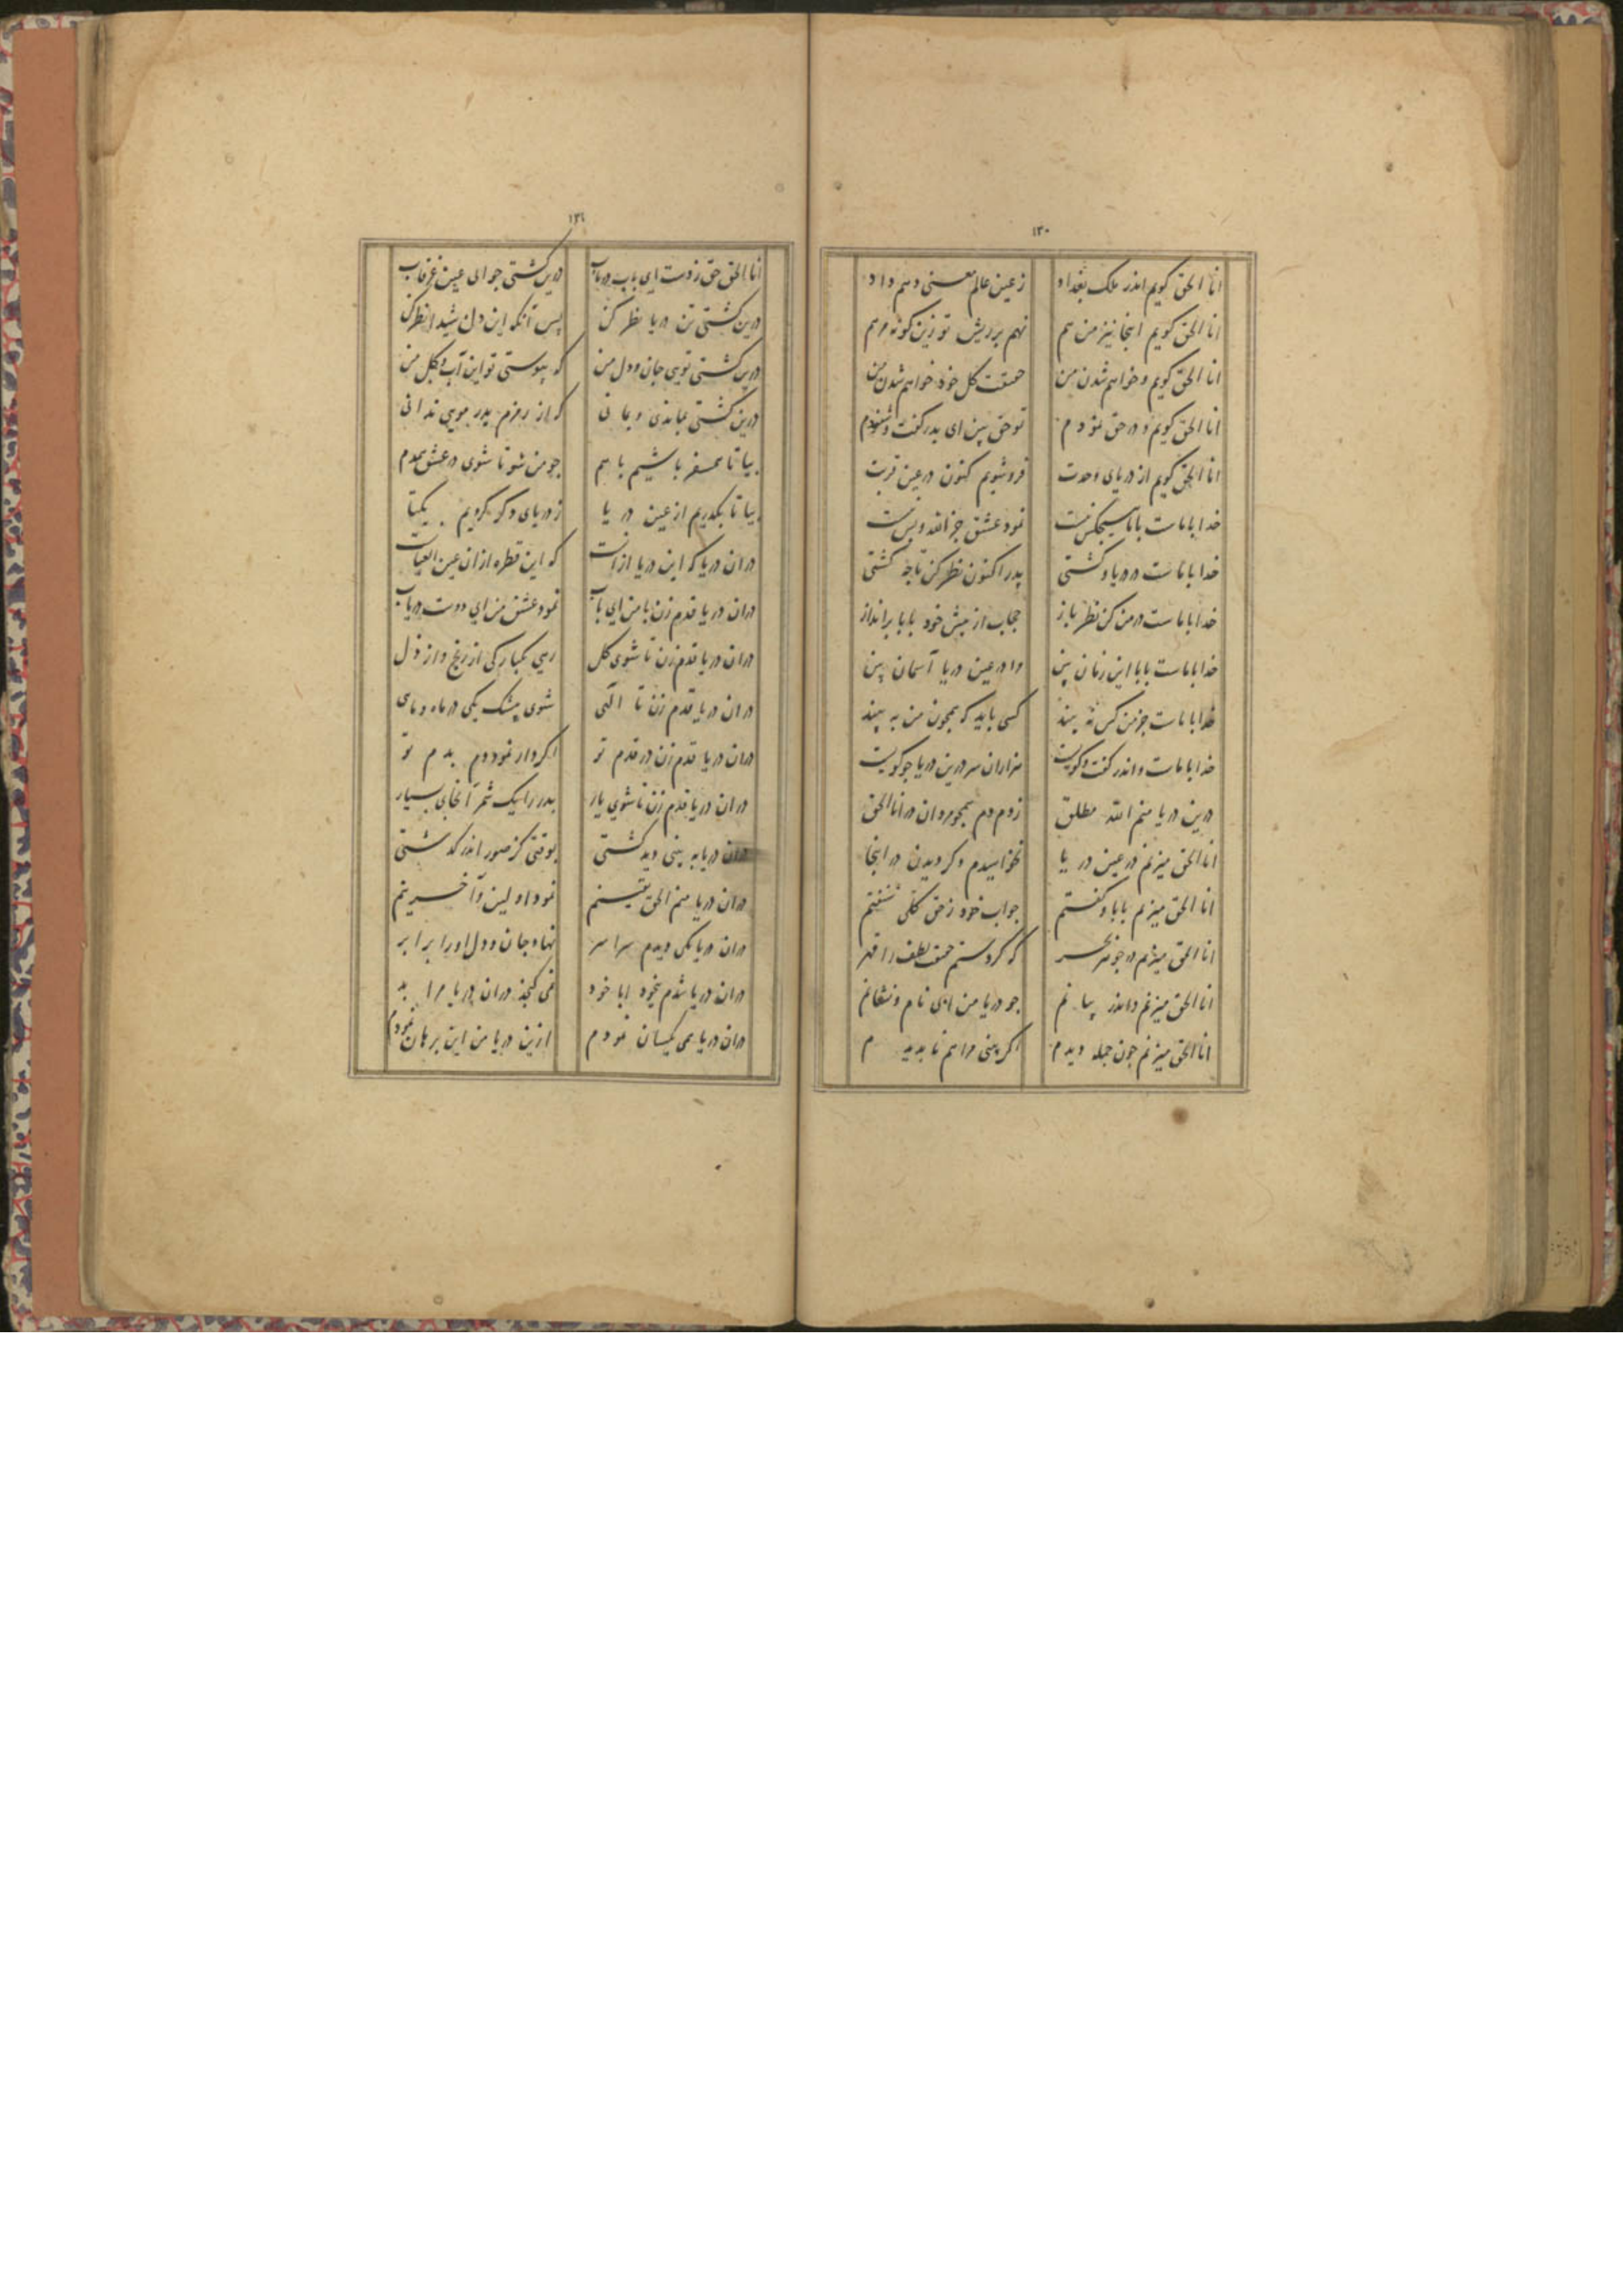 ١٣٠
انا الحق کویم اندر ملک بغداد
زعین عالم معنی دهم داد
انا الحق کویم اینجا نیز من هم
نهم بر ریش تو زین کونه مرهم
انا الحق کویم و خواهم شدن من
حقیقت کل خود خواهم شدن من
انا الحق کویم و در حق نمودم
تو حق بین ای پدر کفت و شنودم
انا الحق کویم از دریای وحدت
فروشویم کنون در عین قربت
خدا با ماست بابا هیچکس نیست
نمود عشق جز الله و بس نیست
خدا با ماست در دریا و کشتی
پدر اکنون نظر کن تا چه کشتی
خدا با ماست در من کن نظر باز
حجاب از پیش خود بابا برانداز
خدا با ماست بابا این زمان بین
ورا در عین دریا آسمان بین
خدا با ماست جز من کس نه بیند
کسی باید که همچون من به بیند
خدا با ماست و اندر کفت و کویست
هزاران سر درین دریا جو کویست
درین دریا منم الله مطلق
زدم دم همچو مردان در انا الحق
انا الحق میزنم در عین دریا
نخواهیدم و کردیدن در اینجا
انا الحق میزنم بابا و کفتم
جواب خود ز حق کلی شنفتم
انا الحق میزنم در جوهر بحر
که کردستم حقیقت لطف را قهر
انا الحق میزنم و اندر بیانم
جو دریا من ابی نام و نشانم
انا الحق میزنم جون جمله دیدم
اکر بینی مرا هم نابدیدم
١٣١
انا الحق حق زدست ای باب دریاب
درین کشتی جو ای عین غرقاب
درین کشتی تن دریا نظر کن
پس آنکه این دل شیدا نظر کن
درین کشتی تویی جان و دل من
که پیوستی تو این آب و کل من
درین کشتی بماندی و بمانی
که از رمزم پدر مویی ندانی
بیا تا همسفر باشیم با هم
جو من شو تا شوی در عشق همدم
بیا تا بکذریم از عین دریا
ز دریای دکر کردیم یکتا
دران دریا که این دریا ازانست
که این قطره ازان عین العیانست
دران دریا قدم زن با من ای باب
نمود عشق من ای دوست دریاب
دران دریا قدم زن تا شوی کل
رهی یکبارکی از رنج و از ذل
دران دریا قدم زن تا اکهی
شوی بیشک یکی در ماه و ماهی
دران دریا قدم زن در قدم تو
اکر دار نمود دم بدم تو
دران دریا قدم زن تا شوی یار
پدر را نیک شمر آنجای بسیار
دران دریا به بینی دید کشتی
بوقتی کز صور اندر کذشتی
دران دریا منم الحق یقینم
نمود اولین و آخرینم
دران دریا یکی دیدم سراسر
نهاد جان و دل او را برابر
دران دریا شدم بیخود ابا خود
نمی کنجد دران دریا مرا بد
دران دریا همی یکسان نمودم
ازین دریا من این برهان نمودم